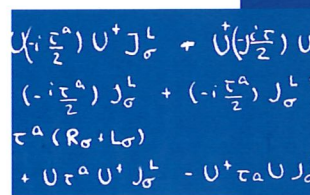 U(-i τᵃ/2) U⁺ J_σ^L + U⁺(J i τ/2) U
(-i τᵃ/2) J_σ^L + (-i τᵃ/2) J_σ^L
τᵃ (R_σ + L_σ)
+ U τᵃ U⁺ J_σ^L - U⁺ τa U J_σ